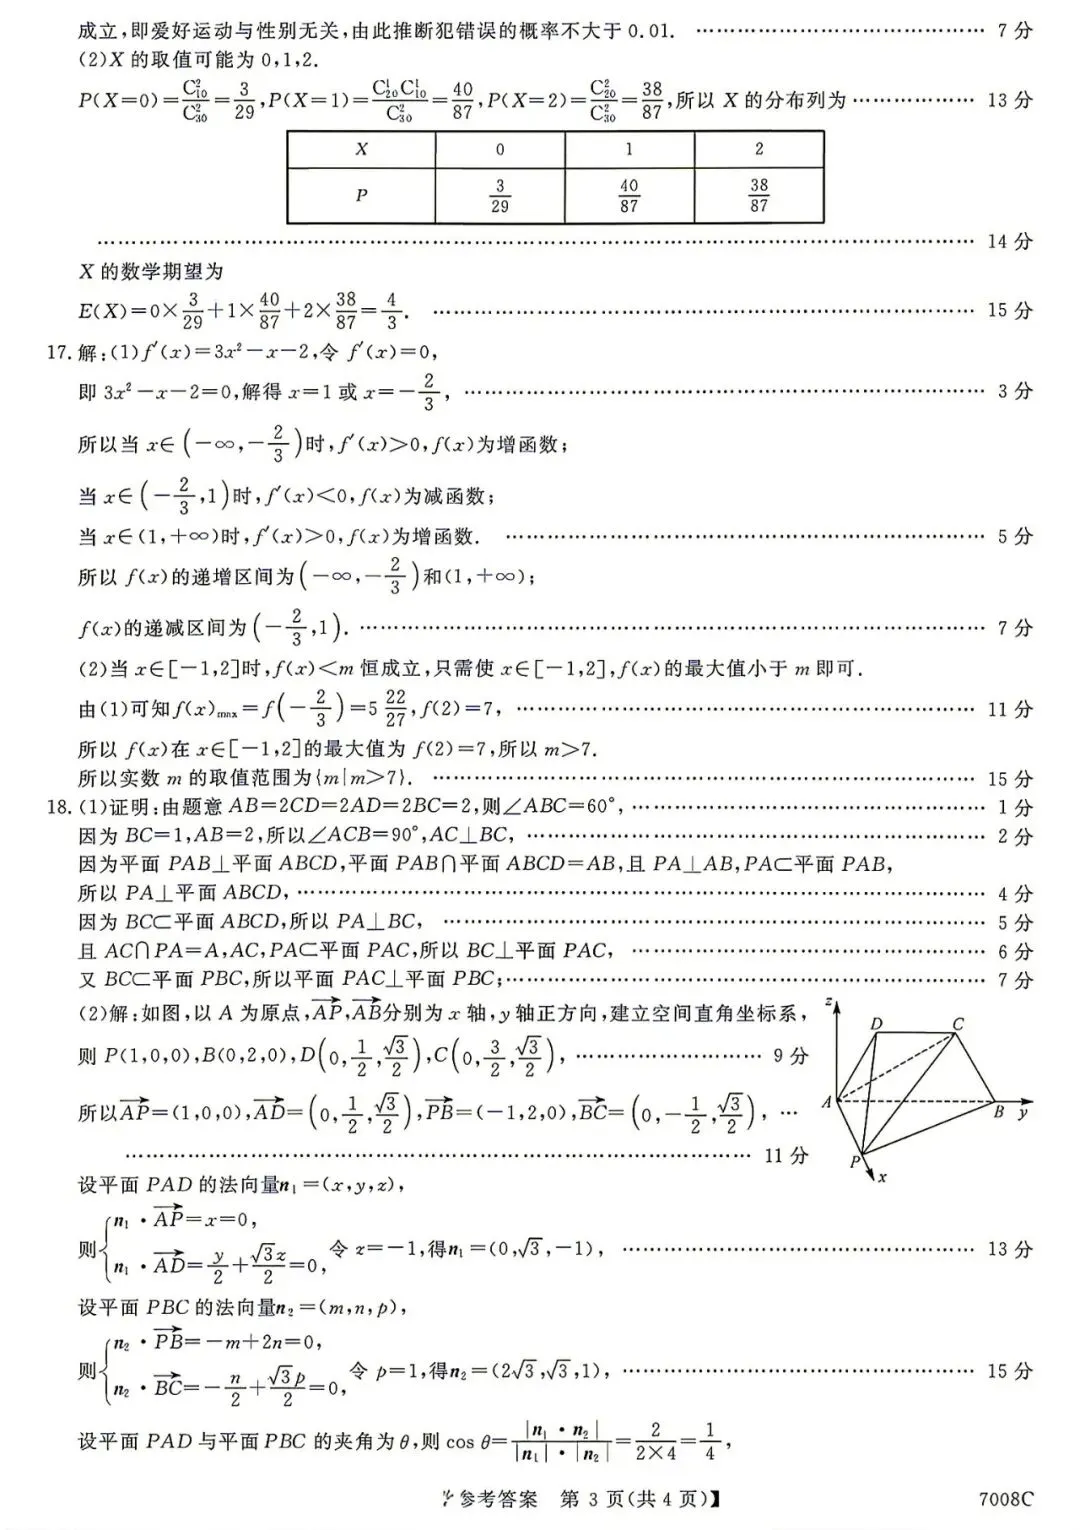 成立,即爱好运动与性别无关,由此推断犯错误的概率不大于 0.01. …… 7 分
(2)X 的取值可能为 0,1,2.
P(X=0)=C²₁₀/C²₃₀=3/29,P(X=1)=C¹₂₀C¹₁₀/C²₃₀=40/87,P(X=2)=C²₂₀/C²₃₀=38/87,所以 X 的分布列为 …… 13 分
X 0 1 2
P 3/29 40/87 38/87
…… 14 分
X 的数学期望为
E(X)=0×3/29+1×40/87+2×38/87=4/3. …… 15 分
17.解:(1)f′(x)=3x²-x-2,令 f′(x)=0,
即 3x²-x-2=0,解得 x=1 或 x=-2/3, …… 3 分
所以当 x∈(-∞,-2/3)时,f′(x)>0,f(x)为增函数;
当 x∈(-2/3,1)时,f′(x)<0,f(x)为减函数;
当 x∈(1,+∞)时,f′(x)>0,f(x)为增函数. …… 5 分
所以 f(x)的递增区间为(-∞,-2/3)和(1,+∞);
f(x)的递减区间为(-2/3,1). …… 7 分
(2)当 x∈[-1,2]时,f(x)<m 恒成立,只需使 x∈[-1,2],f(x)的最大值小于 m 即可.
由(1)可知f(x)max=f(-2/3)=5 22/27,f(2)=7, …… 11 分
所以 f(x)在 x∈[-1,2]的最大值为 f(2)=7,所以 m>7.
所以实数 m 的取值范围为{m|m>7}. …… 15 分
18.(1)证明:由题意 AB=2CD=2AD=2BC=2,则∠ABC=60°, …… 1 分
因为 BC=1,AB=2,所以∠ACB=90°,AC⊥BC, …… 2 分
因为平面 PAB⊥平面 ABCD,平面 PAB∩平面 ABCD=AB,且 PA⊥AB,PA⊂平面 PAB,
所以 PA⊥平面 ABCD, …… 4 分
因为 BC⊂平面 ABCD,所以 PA⊥BC, …… 5 分
且 AC∩PA=A,AC,PA⊂平面 PAC,所以 BC⊥平面 PAC, …… 6 分
又 BC⊂平面 PBC,所以平面 PAC⊥平面 PBC; …… 7 分
(2)解:如图,以 A 为原点,AP→,AB→分别为 x 轴,y 轴正方向,建立空间直角坐标系,
则 P(1,0,0),B(0,2,0),D(0,1/2,√3/2),C(0,3/2,√3/2), …… 9 分
所以AP→=(1,0,0),AD→=(0,1/2,√3/2),PB→=(-1,2,0),BC→=(0,-1/2,√3/2), …
…… 11 分
z
D
C
A
B
y
P
x
设平面 PAD 的法向量n₁=(x,y,z),
则{n₁·AP→=x=0,
n₁·AD→=y/2+√3z/2=0,令 z=-1,得n₁=(0,√3,-1), …… 13 分
设平面 PBC 的法向量n₂=(m,n,p),
则{n₂·PB→=-m+2n=0,
n₂·BC→=-n/2+√3p/2=0,令 p=1,得n₂=(2√3,√3,1), …… 15 分
设平面 PAD 与平面 PBC 的夹角为 θ,则 cos θ=|n₁·n₂|/|n₁|·|n₂|=2/2×4=1/4,
参考答案 第 3 页(共 4 页)】
7008C